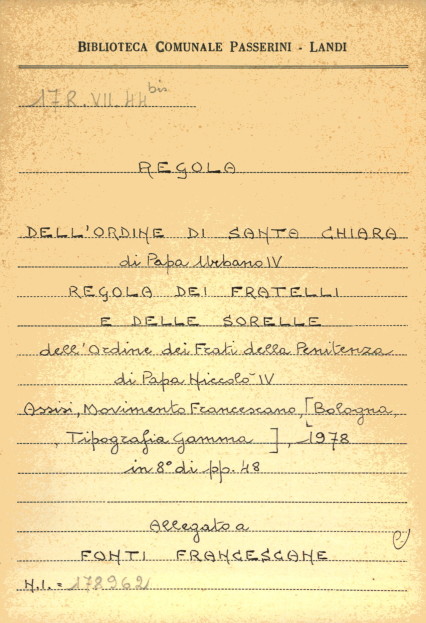 BIBLIOTECA COMUNALE PASSERINI - LANDI
17 R. VII. 44 bis
REGOLA
DELL'ORDINE DI SANTA CHIARA
di Papa Urbano IV
REGOLA DEI FRATELLI
E DELLE SORELLE
dell'Ordine dei Frati della Penitenza
di Papa Niccolò IV
Assisi, Movimento Francescano, [Bologna,
Tipografia Gamma], 1978
in 8° di pp. 48
Allegato a
FONTI FRANCESCANE
N.I. = 178962